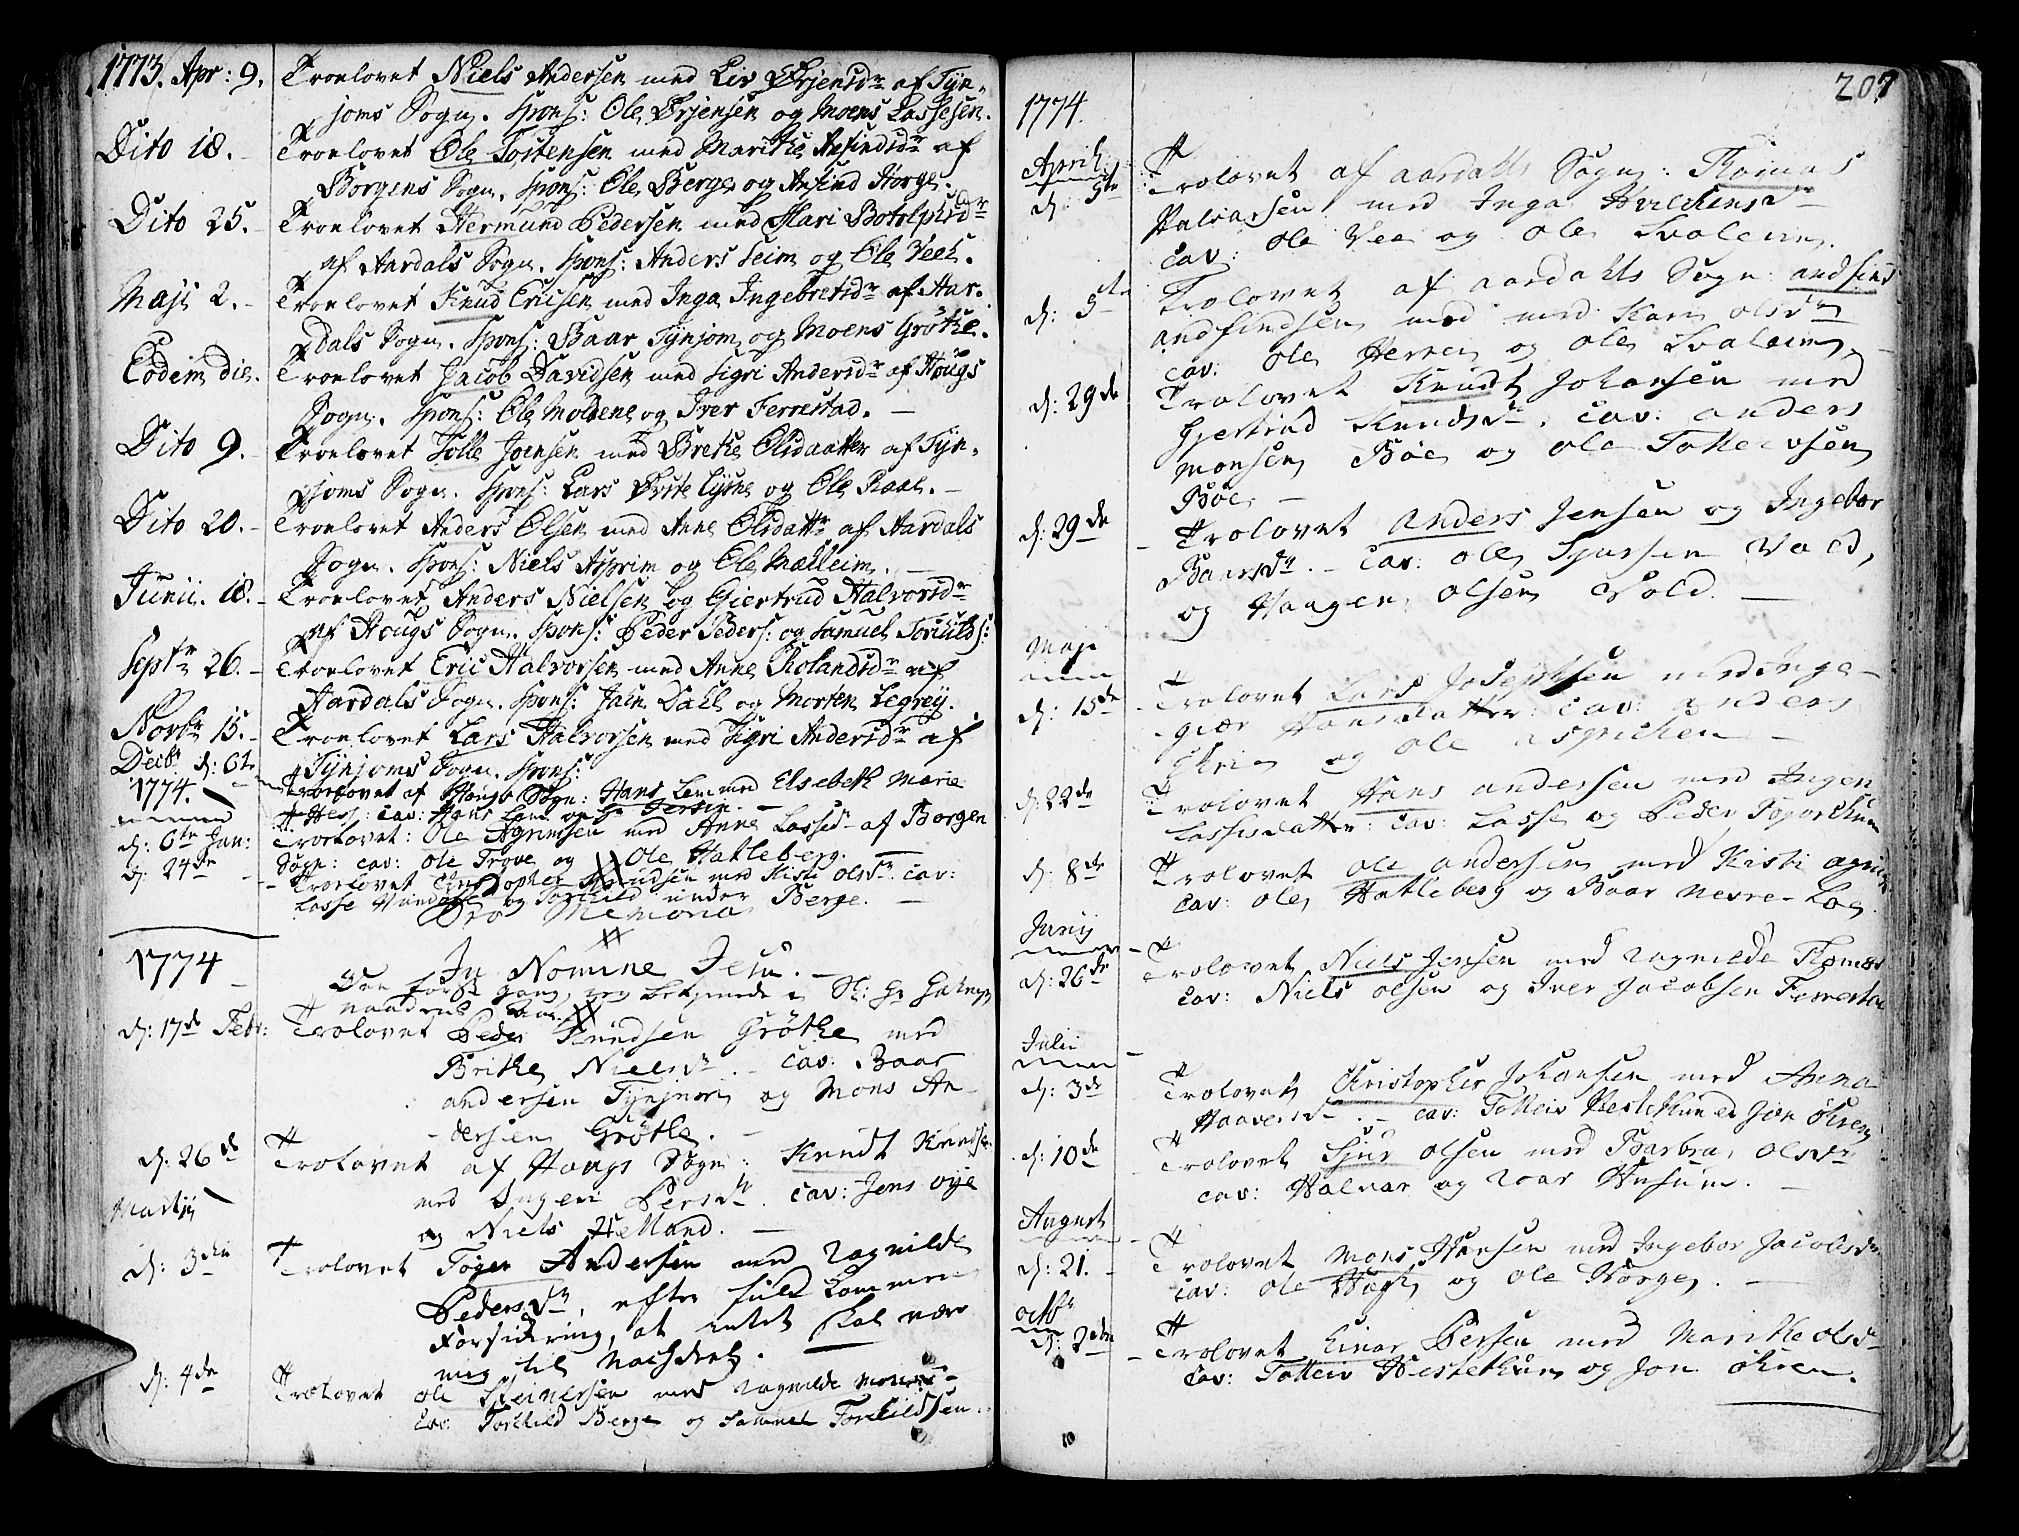 1773. Apr: 9. Troelovet Niels Andersen med Liv Ørjensdr af Tyn-
joms Sogn. Spons: Ole Ørjensen og Moens Lassesen.
Dito 18. - Troelovet Ole Tostensen med Marithe Ansindsdr af
Borgens Sogn. Spons: Ole Berge og Ansind Horge.
Dito 25. - Troelovet Hermund Pedersen med Mari Botolphsdr
af Aardals Sogn. Spons: Anders Seim og Ole Veel.
Maji 2. - Troelovet Knud Ericsen med Inga Ingebretsdr af Aar-
dals Sogn. Spons: Baar Tynjom og Moens Grøthe.
Eodem die. Troelovet Jacob Davidsen med Sigri Andersdr af Hougs
Sogn. Spons: Ole Moldene og Iver Ferrestad. -
Dito 9. - Troelovet Tolle Joensen med Brethe Olsdaatter af Tyn-
joms Sogn. Spons: Lars Øvste Lysne og Ole Raae. -
Dito 20. - Troelovet Anders Olsen med Anne Olsdattr af Aardals
Sogn. Spons: Niels Asprim og Ole Mælleim. -
Junii. 18. - Troelovet Anders Nielsen og Giertrud Halvorsdr
af Hougs Sogn. Spons: Peder Peders: og Samuel Torkilds:
Septr 26. - Troelovet Eric Halvorsen med Anne Rolandsdr af
Aardals Sogn. Spons: Joen Dahl og Morten Legrey.
Novbr 15. - Troelovet Lars Halvorsen med Sigri Andersdr af
Tynjoms Sogn. Spons:
Decbr d: 6te Troelovet af Hougs Sogn: Hans Lem med Elsebeth Marie
1774. Hess: cav: Hans Lem og
d: 6te Jan: Troelovet: Ole med Anne Lassedr af Borgen
Sogn: cav: Ole Trove og Ole Hatleberg.
d: 24de - Troelovet Christopher Knudsen med Kisti Olsdr. cav:
Lasse og Torkild under Berge. -
Pro Memoria
1774 In Nomine Jesu. -
d: 17de Febr: Trolovet Peder Knudsen Grøthe med
Brithe Nielsdr. - cav: Baar
andersen Tynjum og Mons An-
dersen Grøthe. -
d: 26de Trolovet af Hougs Sogn: Knudt Knudsen
med Ingeri Persdr. cav: Jens øye
og Niels Helland. -
Martij
d: 3die Trolovet Toger Andersen med Ragnilde
Pedersdr, efter fuldkommen
Forsikring, at intet skal være
mig til Nachdeel.
d: 4de Trolovet Ole Steinersen med Ragnilde Monsdr
cav: Torkild Berge og Samuel Torkildssen.
207
1774.
April:
d: 5te Trolovet af aardahls Sogn: Thomas
Halvarsen med Inga
cav: Ole Vee og Ole Svaleim.
d: 5te Trolovet af aardahls Sogn: andfind
andfindsen med med Kari olsdr
cav: Ole Herrei og Ole Svaleim. -
d: 29de Trolovet Knudt Johansen med
Gjertrud Knudsdr. cav: anders
monsen Böe og Ole Tolleivsen
Böe. -
d: 29de - Trolovet anders Jensen og Ingebor
Baarsdr. - cav: Ole Sjursen Vold,
og Haagen olsen Vold. -
Maji
d: 15de - Trolovet Lars Josephsen med Inge-
giær Hansdatter: cav: anders
og Ole -
d: 22de Trolovet Hans andersen med Ingeri
Lassesdatter: cav: Lasse og Peder
d: 8de Trolovet Ole andersen med Kisti
cav: Ole Hatleberg og Baar Nevre-Loe
Junij
d: 26de Trolovet Niels Jensen med Ragnilde
cav: Niels olsen og Iver Jacobsen Ferrestad
Julii
d: 3de Trolovet Christopher Johansen med Anna
cav: Tolleiv Hestethun og Jon Öhren
d: 10de Trolovet Sjur olsen med Barbra olsdr
cav: Halvar og Roar Husum. -
August
d: 21. - Trolovet Mons Hansen med Ingebor Jacobsdr
cav: Ole og Ole Horge. -
octbr
d: 2den - Trolovet Einar Persen med Marithe olsd-
cav: Tolleiv Hestethun og Jon öhren.